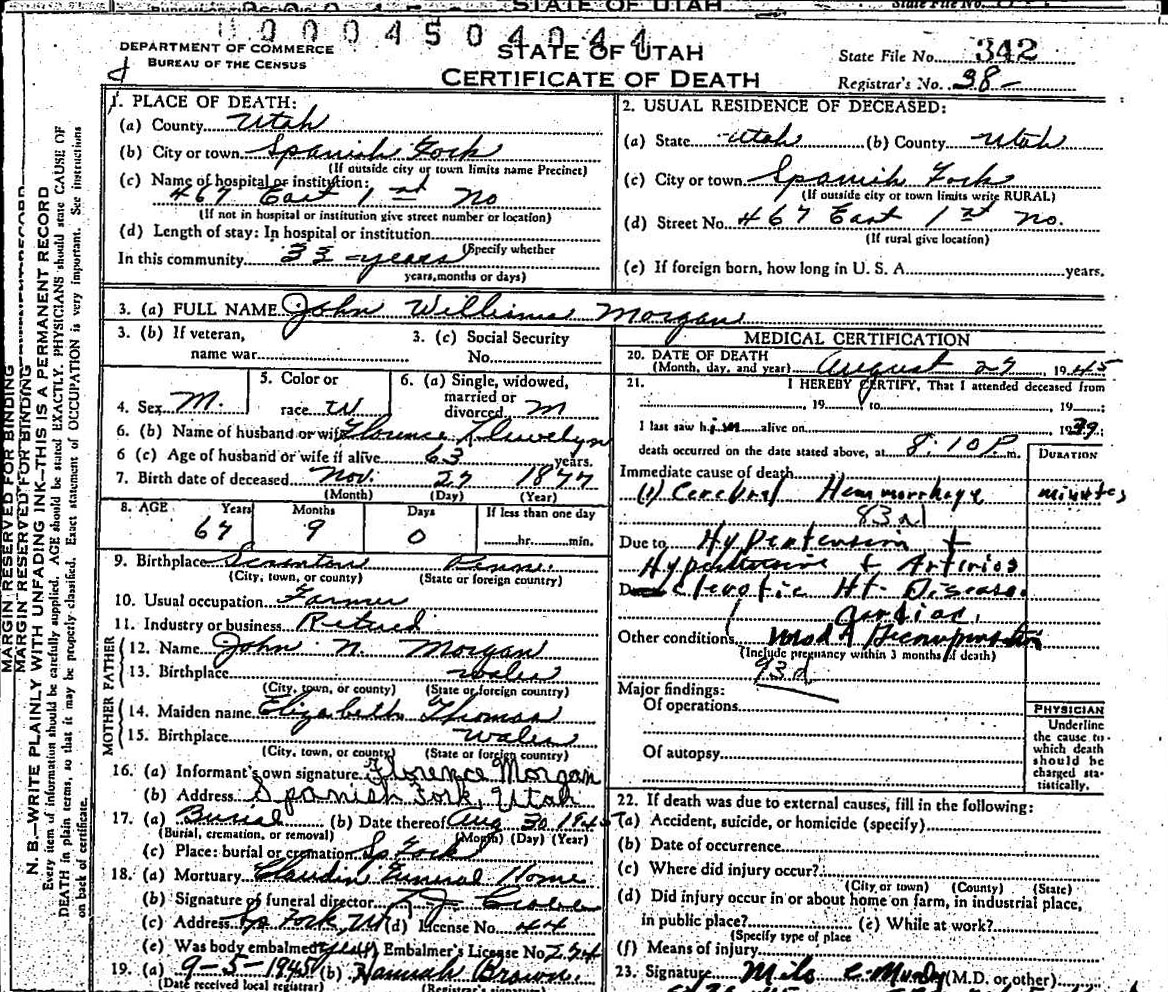 STATE OF UTAH
State File No.
00004504044
DEPARTMENT OF COMMERCE
BUREAU OF THE CENSUS
STATE OF UTAH
CERTIFICATE OF DEATH
State File No. 342
Registrar's No. 38
MARGIN RESERVED FOR BINDING
MARGIN RESERVED FOR BINDING
N. B.—WRITE PLAINLY WITH UNFADING INK—THIS IS A PERMANENT RECORD
Every item of information should be carefully supplied. AGE should be stated EXACTLY. PHYSICIANS should state CAUSE OF
DEATH in plain terms, so that it may be properly classified. Exact statement of OCCUPATION is very important. See instructions
on back of certificate.
1. PLACE OF DEATH:
(a) County Utah
(b) City or town Spanish Fork
(If outside city or town limits name Precinct)
(c) Name of hospital or institution:
467 East 1st No
(If not in hospital or institution give street number or location)
(d) Length of stay: In hospital or institution
(Specify whether
In this community 33 years
years, months or days)
2. USUAL RESIDENCE OF DECEASED:
(a) State Utah (b) County Utah
(c) City or town Spanish Fork
(If outside city or town limits write RURAL)
(d) Street No. 467 East 1st No.
(If rural give location)
(e) If foreign born, how long in U. S. A. years.
3. (a) FULL NAME John Williams Morgan
3. (b) If veteran,
name war
3. (c) Social Security
No.
4. Sex M.
5. Color or
race W
6. (a) Single, widowed,
married or
divorced m
6. (b) Name of husband or wife Florence Llewelyn
6 (c) Age of husband or wife if alive 63 years.
7. Birth date of deceased Nov. 27 1877
(Month) (Day) (Year)
8. AGE Years Months Days If less than one day
67 9 0 hr. min.
9. Birthplace Scranton Penn.
(City, town, or county) (State or foreign country)
10. Usual occupation Farmer
11. Industry or business Retired
FATHER
12. Name John N. Morgan
13. Birthplace Wales
(City, town, or county) (State or foreign country)
MOTHER
14. Maiden name Elizabeth Thomas
15. Birthplace Wales
(City, town, or county) (State or foreign country)
16. (a) Informant's own signature Florence Morgan
(b) Address Spanish Fork, Utah
17. (a) Burial (b) Date thereof Aug 30 1945
(Burial, cremation, or removal) (Month) (Day) (Year)
(c) Place: burial or cremation Sp Fork
18. (a) Mortuary Claudin Funeral Home
(b) Signature of funeral director
(c) Address Sp Fork, Ut (d) License No. 44
(e) Was body embalmed yes Embalmer's License No. 224
19. (a) 9-5-1945 (b) Hannah Brown.
(Date received local registrar) (Registrar's signature)
MEDICAL CERTIFICATION
20. DATE OF DEATH
(Month, day, and year) August 27, 1945
21. I HEREBY CERTIFY, That I attended deceased from
, 19 to , 19 ;
I last saw him alive on , 1939.
death occurred on the date stated above, at 8:10 P. m.
DURATION
Immediate cause of death
(1) Cerebral Hemmorrhage minutes
83a1
Due to Hypertension +
Hypertensive & Arterios
Due clerotic Ht. Disease.
Cardiac.
Other conditions Mod Decompensation
(Include pregnancy within 3 months of death)
93d
Major findings:
Of operations
Of autopsy
PHYSICIAN
Underline
the cause to
which death
should be
charged sta-
tistically.
22. If death was due to external causes, fill in the following:
(a) Accident, suicide, or homicide (specify)
(b) Date of occurrence
(c) Where did injury occur?
(City or town) (County) (State)
(d) Did injury occur in or about home on farm, in industrial place,
in public place? (e) While at work?
(Specify type of place
(f) Means of injury
23. Signature Milo C Moody (M.D. or other)